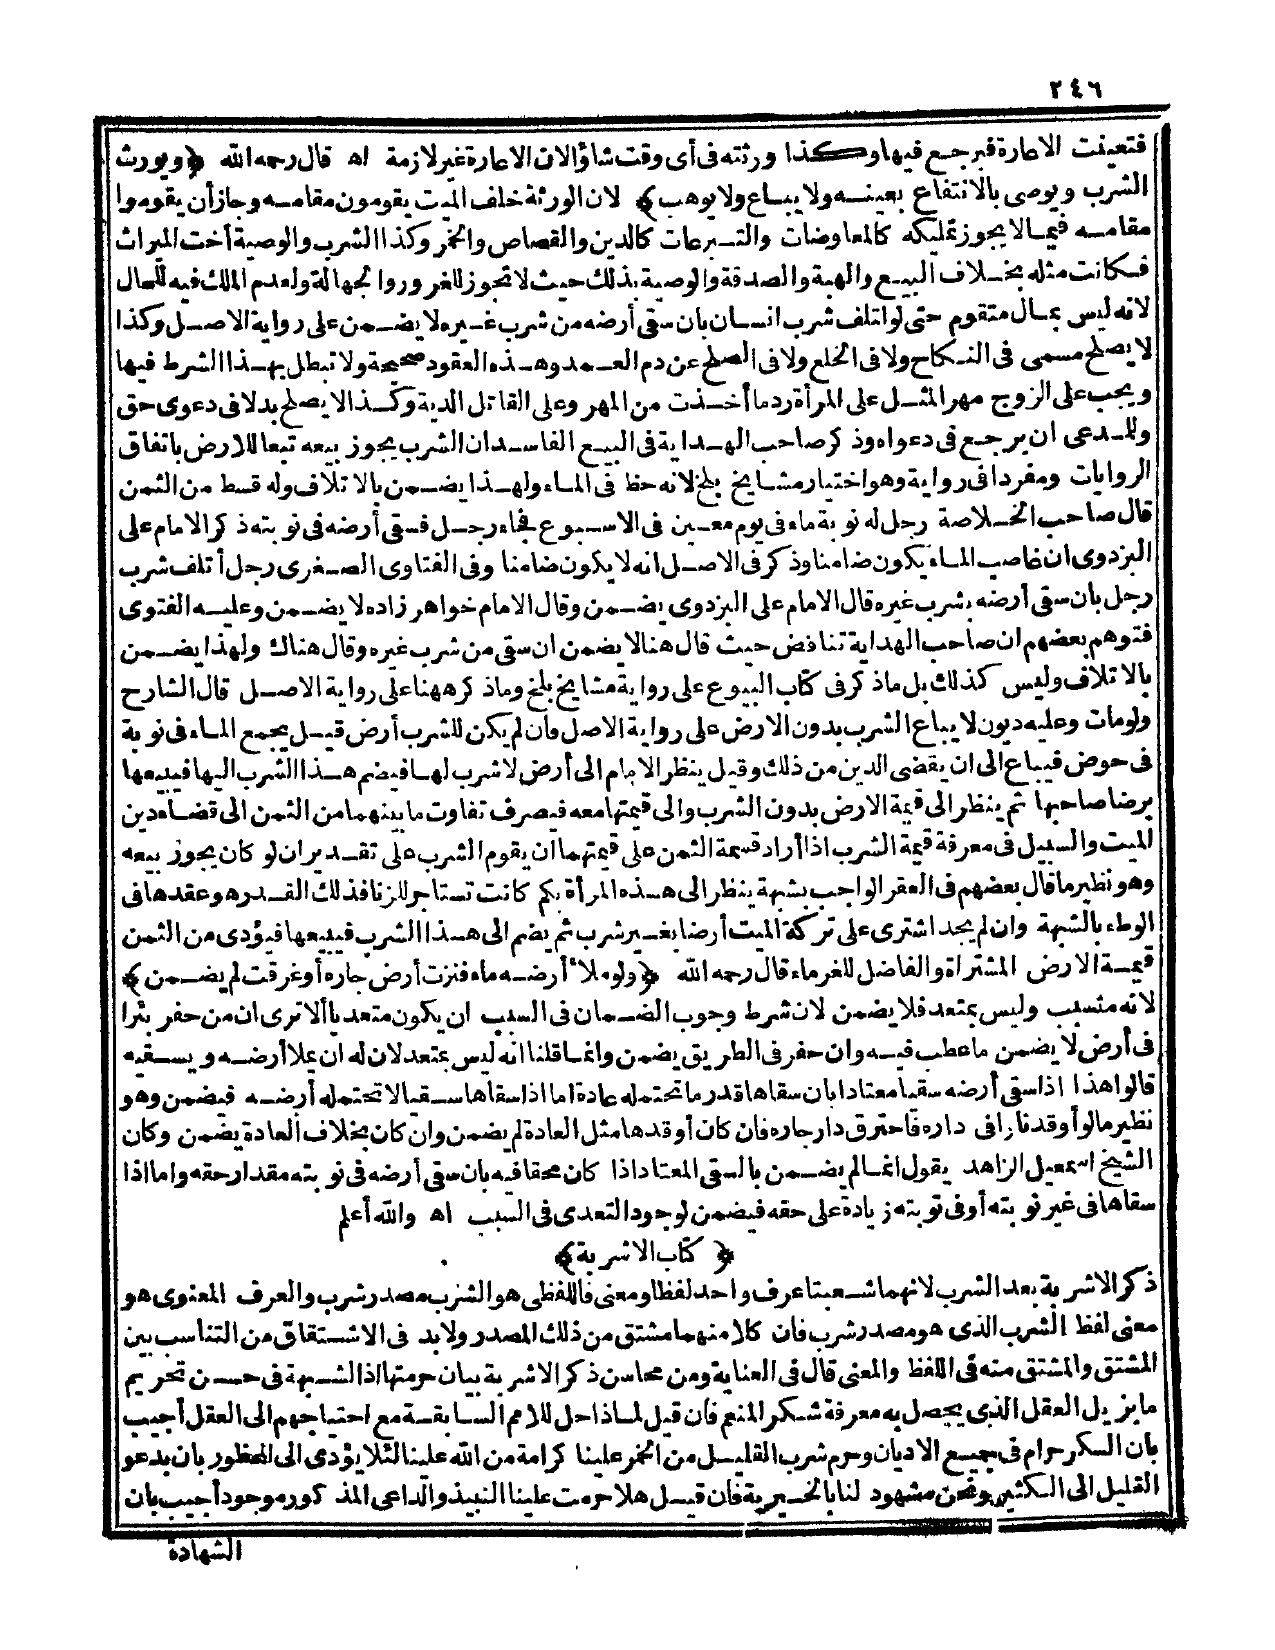 ٢٤٦
فتعينت الاعارة فيرجع فيها وكذا ورثته فى أى وقت شاؤالان الاعارة غير لازمة اه قال رحمه الله ﴿ويورث
الشرب ويوصى بالانتفاع بعينه ولا يباع ولا يوهب﴾ لان الورثة خلف الميت يقومون مقامه وجاز أن يقوموا
مقامه فيما لا يجوز تمليكه كالمعاوضات والتبرعات كالدين والقصاص والخمر وكذا الشرب والوصية أخت الميراث
فكانت مثله بخلاف البيع والهبة والصدقة والوصية بذلك حيث لا تجوز للغرور وا لجهالة ولعدم الملك فيه للحال
لانه ليس بمال متقوم حتى لو اتلف شرب انسان بان سقى أرضه من شرب غيره لا يضمن على رواية الاصل وكذا
لا يصلح مسمى فى النكاح ولا فى الخلع ولا فى الصلح عن دم العمد وهذه العقود صحيحة ولا تبطل بهذا الشرط فيها
ويجب على الزوج مهر المثل على المرأة رد ما أخذت من المهر وعلى القاتل الدية وكذا لا يصلح بدلا فى دعوى حق
وللمدعى ان يرجع فى دعواه وذكر صاحب الهداية فى البيع الفاسد ان الشرب يجوز بيعه تبعا للارض باتفاق
الروايات ومفردا فى رواية وهو اختيار مشايخ بلخ لانه حظ فى الماء ولهذا يضمن بالاتلاف وله قسط من الثمن
قال صاحب الخلاصة رجل له نوبة ماء فى يوم معين فى الاسبوع فجاء رجل فسقى أرضه فى نوبته ذكر الامام على
البزدوى ان غاصب الماء يكون ضامنا وذكر فى الاصل انه لا يكون ضامنا وفى الفتاوى الصغرى رجل أتلف شرب
رجل بان سقى أرضه بشرب غيره قال الامام على البزدوى يضمن وقال الامام خواهر زاده لا يضمن وعليه الفتوى
فتوهم بعضهم ان صاحب الهداية تناقض حيث قال هنا لا يضمن ان سقى من شرب غيره وقال هناك ولهذا يضمن
بالاتلاف وليس كذلك بل ما ذكر فى كتاب البيوع على رواية مشايخ بلخ وما ذكر ههنا على رواية الاصل قال الشارح
ولو مات وعليه ديون لا يباع الشرب بدون الارض على رواية الاصل فان لم يكن للشرب أرض قيل يجمع الماء فى نوبة
فى حوض فيباع الى ان يقضى الدين من ذلك وقيل ينظر الامام الى أرض لا شرب لها فيضم هذا الشرب اليها فيبيعها
برضا صاحبها ثم ينظر الى قيمة الارض بدون الشرب والى قيمتها معه فيصرف تفاوت ما بينهما من الثمن الى قضاء دين
الميت والسبيل فى معرفة قيمة الشرب اذا أراد قسمة الثمن على قيمتهما أن يقوم الشرب على تقدير ان لو كان يجوز بيعه
وهو نظير ما قال بعضهم فى العقر الواجب بشبهة ينظر الى هذه المرأة بكم كانت تستاجر للزنا فذلك القدر هو عقدها فى
الوطء بالشبهة وان لم يجد اشترى على تركة الميت أرضا بغير شرب ثم يضم الى هذا الشرب فيبيعها فيؤدى من الثمن
قيمة الارض المشتراة والفاضل للغرماء قال رحمه الله ﴿ولو ملأ أرضه ماء فنزت أرض جاره أو غرقت لم يضمن﴾
لانه متسبب وليس بمتعد فلا يضمن لان شرط وجوب الضمان فى السبب ان يكون متعديا ألا ترى ان من حفر بئرا
فى أرض لا يضمن ما عطب فيه وان حفر فى الطريق يضمن وانما قلنا انه ليس بمتعد لان له ان يملا أرضه ويسقيه
قالوا هذا اذا سقى أرضه سقيا معتادا بان سقاها قدر ما تحتمله عادة اما اذا سقاها سقيا لا تحتمله أرضه فيضمن وهو
نظير ما لو أوقد نارا فى داره فاحترق دار جاره فان كان أوقدها مثل العادة لم يضمن وان كان بخلاف العادة يضمن وكان
الشيخ اسمعيل الزاهد يقول انما لم يضمن بالسقى المعتاد اذا كان محقا فيه بان سقى أرضه فى نوبته مقدار حقه واما اذا
سقاها فى غير نوبته أو فى نوبته زيادة على حقه فيضمن لوجود التعدى فى السبب اه والله أعلم
﴿كتاب الاشربة﴾
ذكر الاشربة بعد الشرب لانهما شعبتا عرف واحد لفظا ومعنى فاللفظى هو الشرب مصدر شرب والعرف المعنوى هو
معنى لفظ الشرب الذى هو مصدر شرب فان كلا منهما مشتق من ذلك المصدر ولا بد فى الاشتقاق من التناسب بين
المشتق والمشتق منه فى اللفظ والمعنى قال فى العناية ومن محاسن ذكر الاشربة بيان حرمتها اذا الشبهة فى حسن تحريم
ما يزيل العقل الذى يحصل به معرفة شكر المنعم فان قيل لماذا حل للامم السابقة مع احتياجهم الى العقل أجيب
بان السكر حرام فى جميع الاديان وحرم شرب القليل من الخمر علينا كرامة من الله علينا لئلا يؤدى الى المحظور بان يدعو
القليل الى الكثير ونحن مشهود لنا بالخيرية فان قيل هلا حرمت علينا النبيذ والداعى المذكور موجود أجيب بان
الشهادة